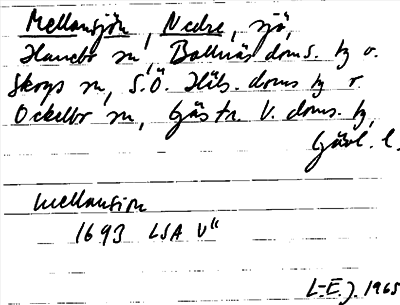 Mellansjön, Nedre, sjö,
Hanebo sn, Bollnäs doms. tg o.
Skogs sn, S.Ö. Häls. doms tg o.
Ockelbo sn, Gästr. V. doms. tg,
Gävl. l.
Mellansion
1693 LSA V"
L-E.J. 1965